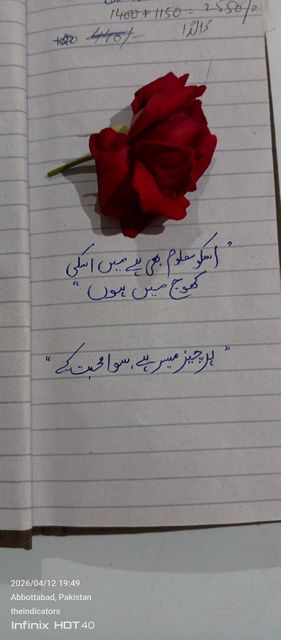 1400 + 1150 = 2550/=
ڈالڈا
440/-
" اسکو معلوم بھی ہے میں اسکی
کھوج میں ہوں "
" ہر چیز میسر ہے، سوا محبت کے "
2026/04/12 19:49
Abbottabad, Pakistan
theindicators
Infinix HOT 40